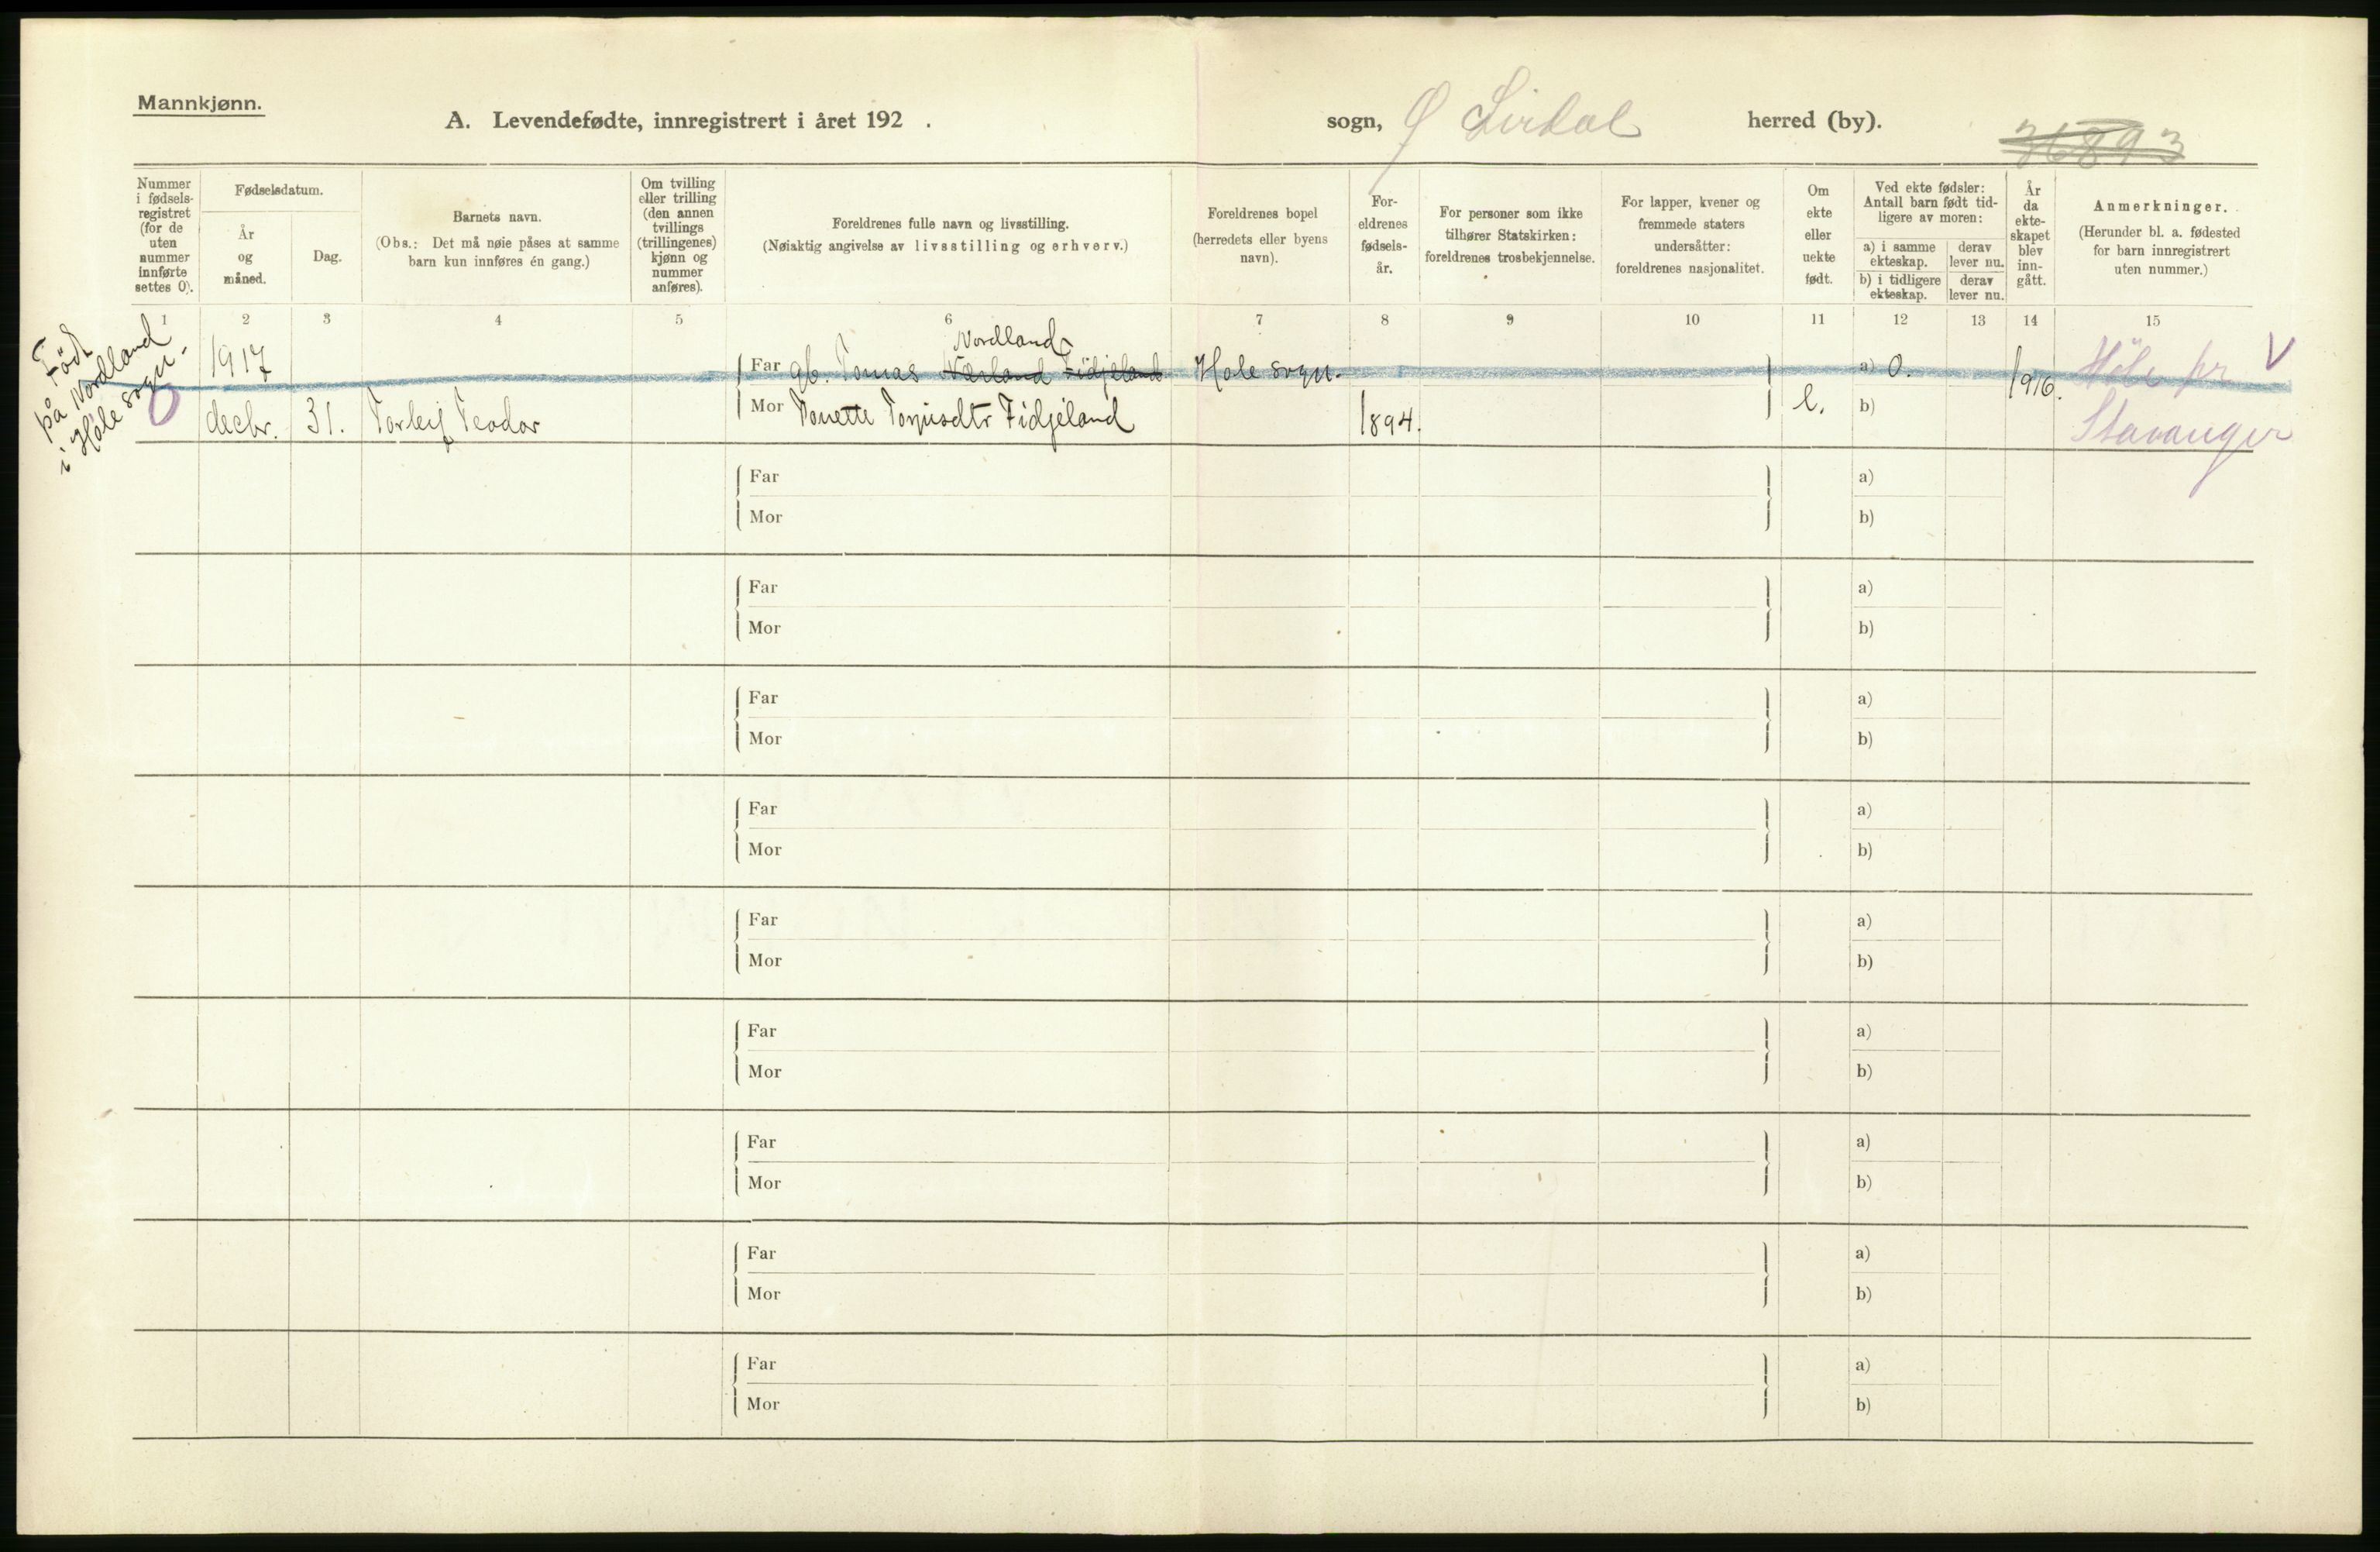 Mannkjønn.
A. Levendefødte, innregistrert i året 192 .
sogn, Ø Sirdal herred (by).
36893
Nummer i fødsels-registret (for de uten nummer innførte settes 0).
Fødselsdatum.
År og måned.
Dag.
Barnets navn.
(Obs.: Det må nøie påses at samme barn kun innføres én gang.)
Om tvilling eller trilling (den annen tvillings (trillingenes) kjønn og nummer anføres).
Foreldrenes fulle navn og livsstilling.
(Nøiaktig angivelse av livsstilling og erhverv.)
Foreldrenes bopel (herredets eller byens navn).
For-eldrenes fødsels-år.
For personer som ikke tilhører Statskirken: foreldrenes trosbekjennelse.
For lapper, kvener og fremmede staters undersåtter: foreldrenes nasjonalitet.
Om ekte eller uekte født.
Ved ekte fødsler: Antall barn født tid-ligere av moren:
a) i samme ekteskap.
derav lever nu.
b) i tidligere ekteskap.
derav lever nu.
År da ekte-skapet blev inn-gått.
Anmerkninger.
(Herunder bl. a. fødested for barn innregistrert uten nummer.)
1 2 3 4 5 6 7 8 9 10 11 12 13 14 15
Født
på Nordland
i Høle sogn.
0
1917
decbr. 31. Torleif Teodor
Nordland
Far gb. Tomas Nærland Fidjeland Høle sogn. a) 0. 1916. Höle pr V
Mor Tonette Torjusdtr Fidjeland 1894. e. b) Stavanger
Far a)
Mor b)
Far a)
Mor b)
Far a)
Mor b)
Far a)
Mor b)
Far a)
Mor b)
Far a)
Mor b)
Far a)
Mor b)
Far a)
Mor b)
Far a)
Mor b)